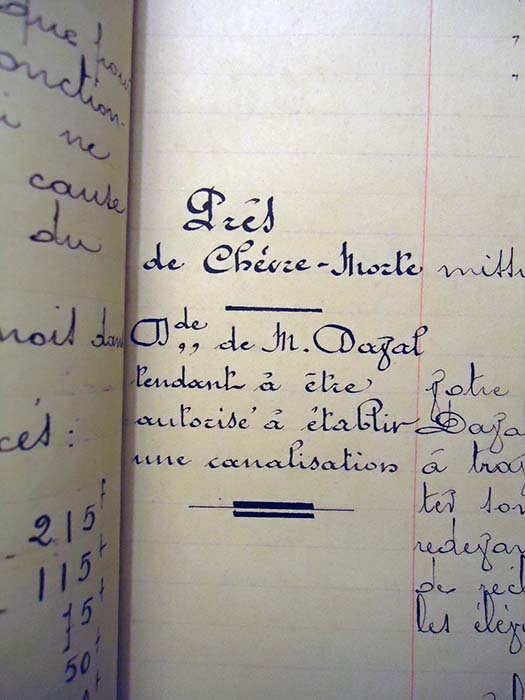 que
onction-
i ne
cause
du
noit dans
cés :
215 f
115 f
15 f
50 f
Près
de Chèvre-Morte
Dde de M. Dazal
tendant à être
autorisé à établir
une canalisation
Daza
à tra
ter son
redeva
les